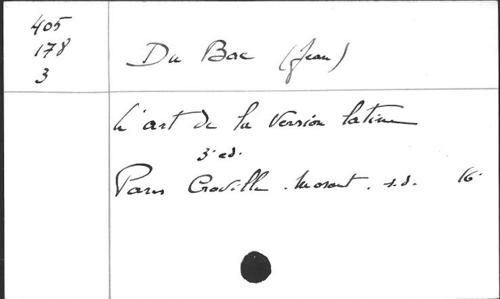 405
178
3
Du Bac (Jean)
L'art de la version latine
3e ed.
Paris Croville. Morant. s.d. 16.